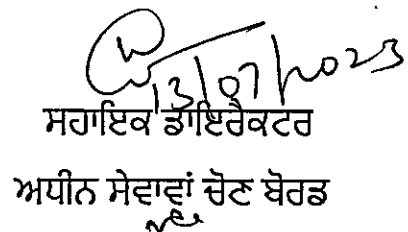 13/07/2023
ਸਹਾਇਕ ਡਾਇਰੈਕਟਰ
ਅਧੀਨ ਸੇਵਾਵਾਂ ਚੋਣ ਬੋਰਡ